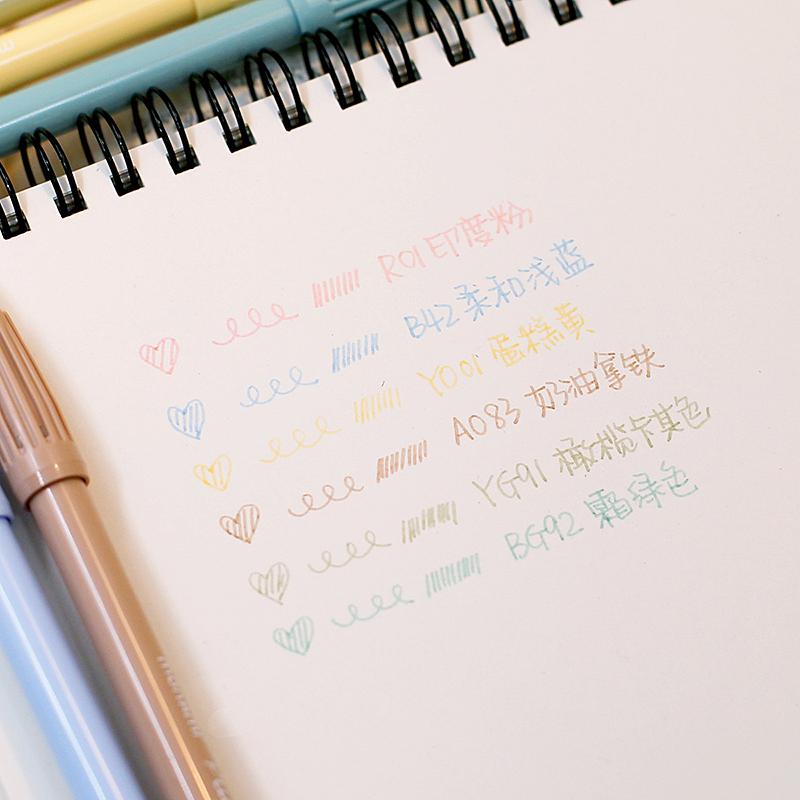 R01印度粉
B42柔和浅蓝
Y001蛋糕黄
A083奶油拿铁
YG91橄榄卡其色
BG92霜绿色